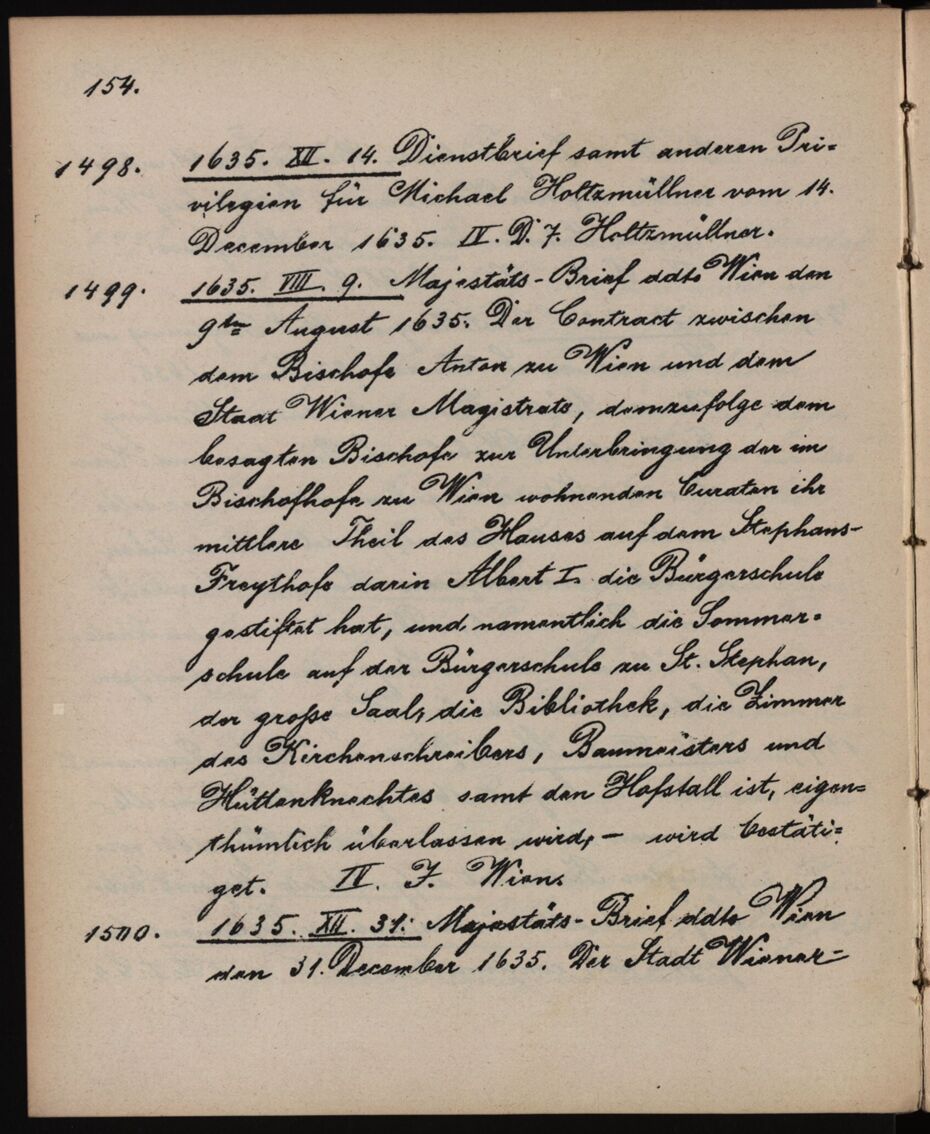 154.
1498. 1635. XII. 14. Dienstbrief samt anderen Pri=
vilegien für Michael Holtzmüllner vom 14.
December 1635. IV. D. 7. Holtzmüllner.
1499. 1635. VIII. 9. Majestäts-Brief ddto Wien den
9ten August 1635. Der Contract zwischen
dem Bischofe Anton zu Wien und dem
Staat Wiener Magistrate, demzufolge dem
besagten Bischofe zur Unterbringung der im
Bischofhofe zu Wien wohnenden Curaten ihr
mittlere Theil des Hauses auf dem Stephans-
Freythofe darin Albert I. die Bürgerschule
gestiftet hat, und namentlich die Sommer-
schule auf der Bürgerschule zu St. Stephan,
der große Saal, die Bibliothek, die Zimmer
des Kirchenschreibers, Baumeisters und
Hüttenknechtes samt den Hofstall ist, eigen=
thümlich überlassen wird, – wird bestäti=
get. IV. F. Wien.
1500. 1635. XII. 31. Majestäts-Brief ddto Wien
den 31. December 1635. Der Stadt Wiener=